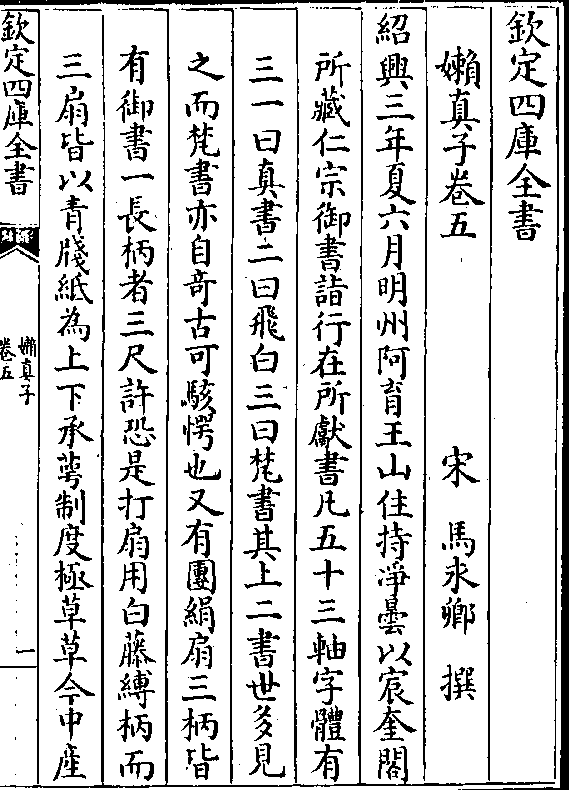 欽定四庫全書
嬾真子卷五
宋 馬永卿 撰
紹興三年夏六月明州阿育王山住持淨曇以宸奎閣
所藏仁宗御書詣行在所獻書凡五十三軸字體有
三一曰真書二曰飛白三曰梵書其上二書世多見
之而梵書亦自竒古可駭愕也又有團絹扇三柄皆
有御書一長柄者三尺許恐是打扇用白藤縛柄而
三扇皆以青牋紙為上下承萼制度極草草今中産
欽定四庫全書
嬾真子
卷五
一